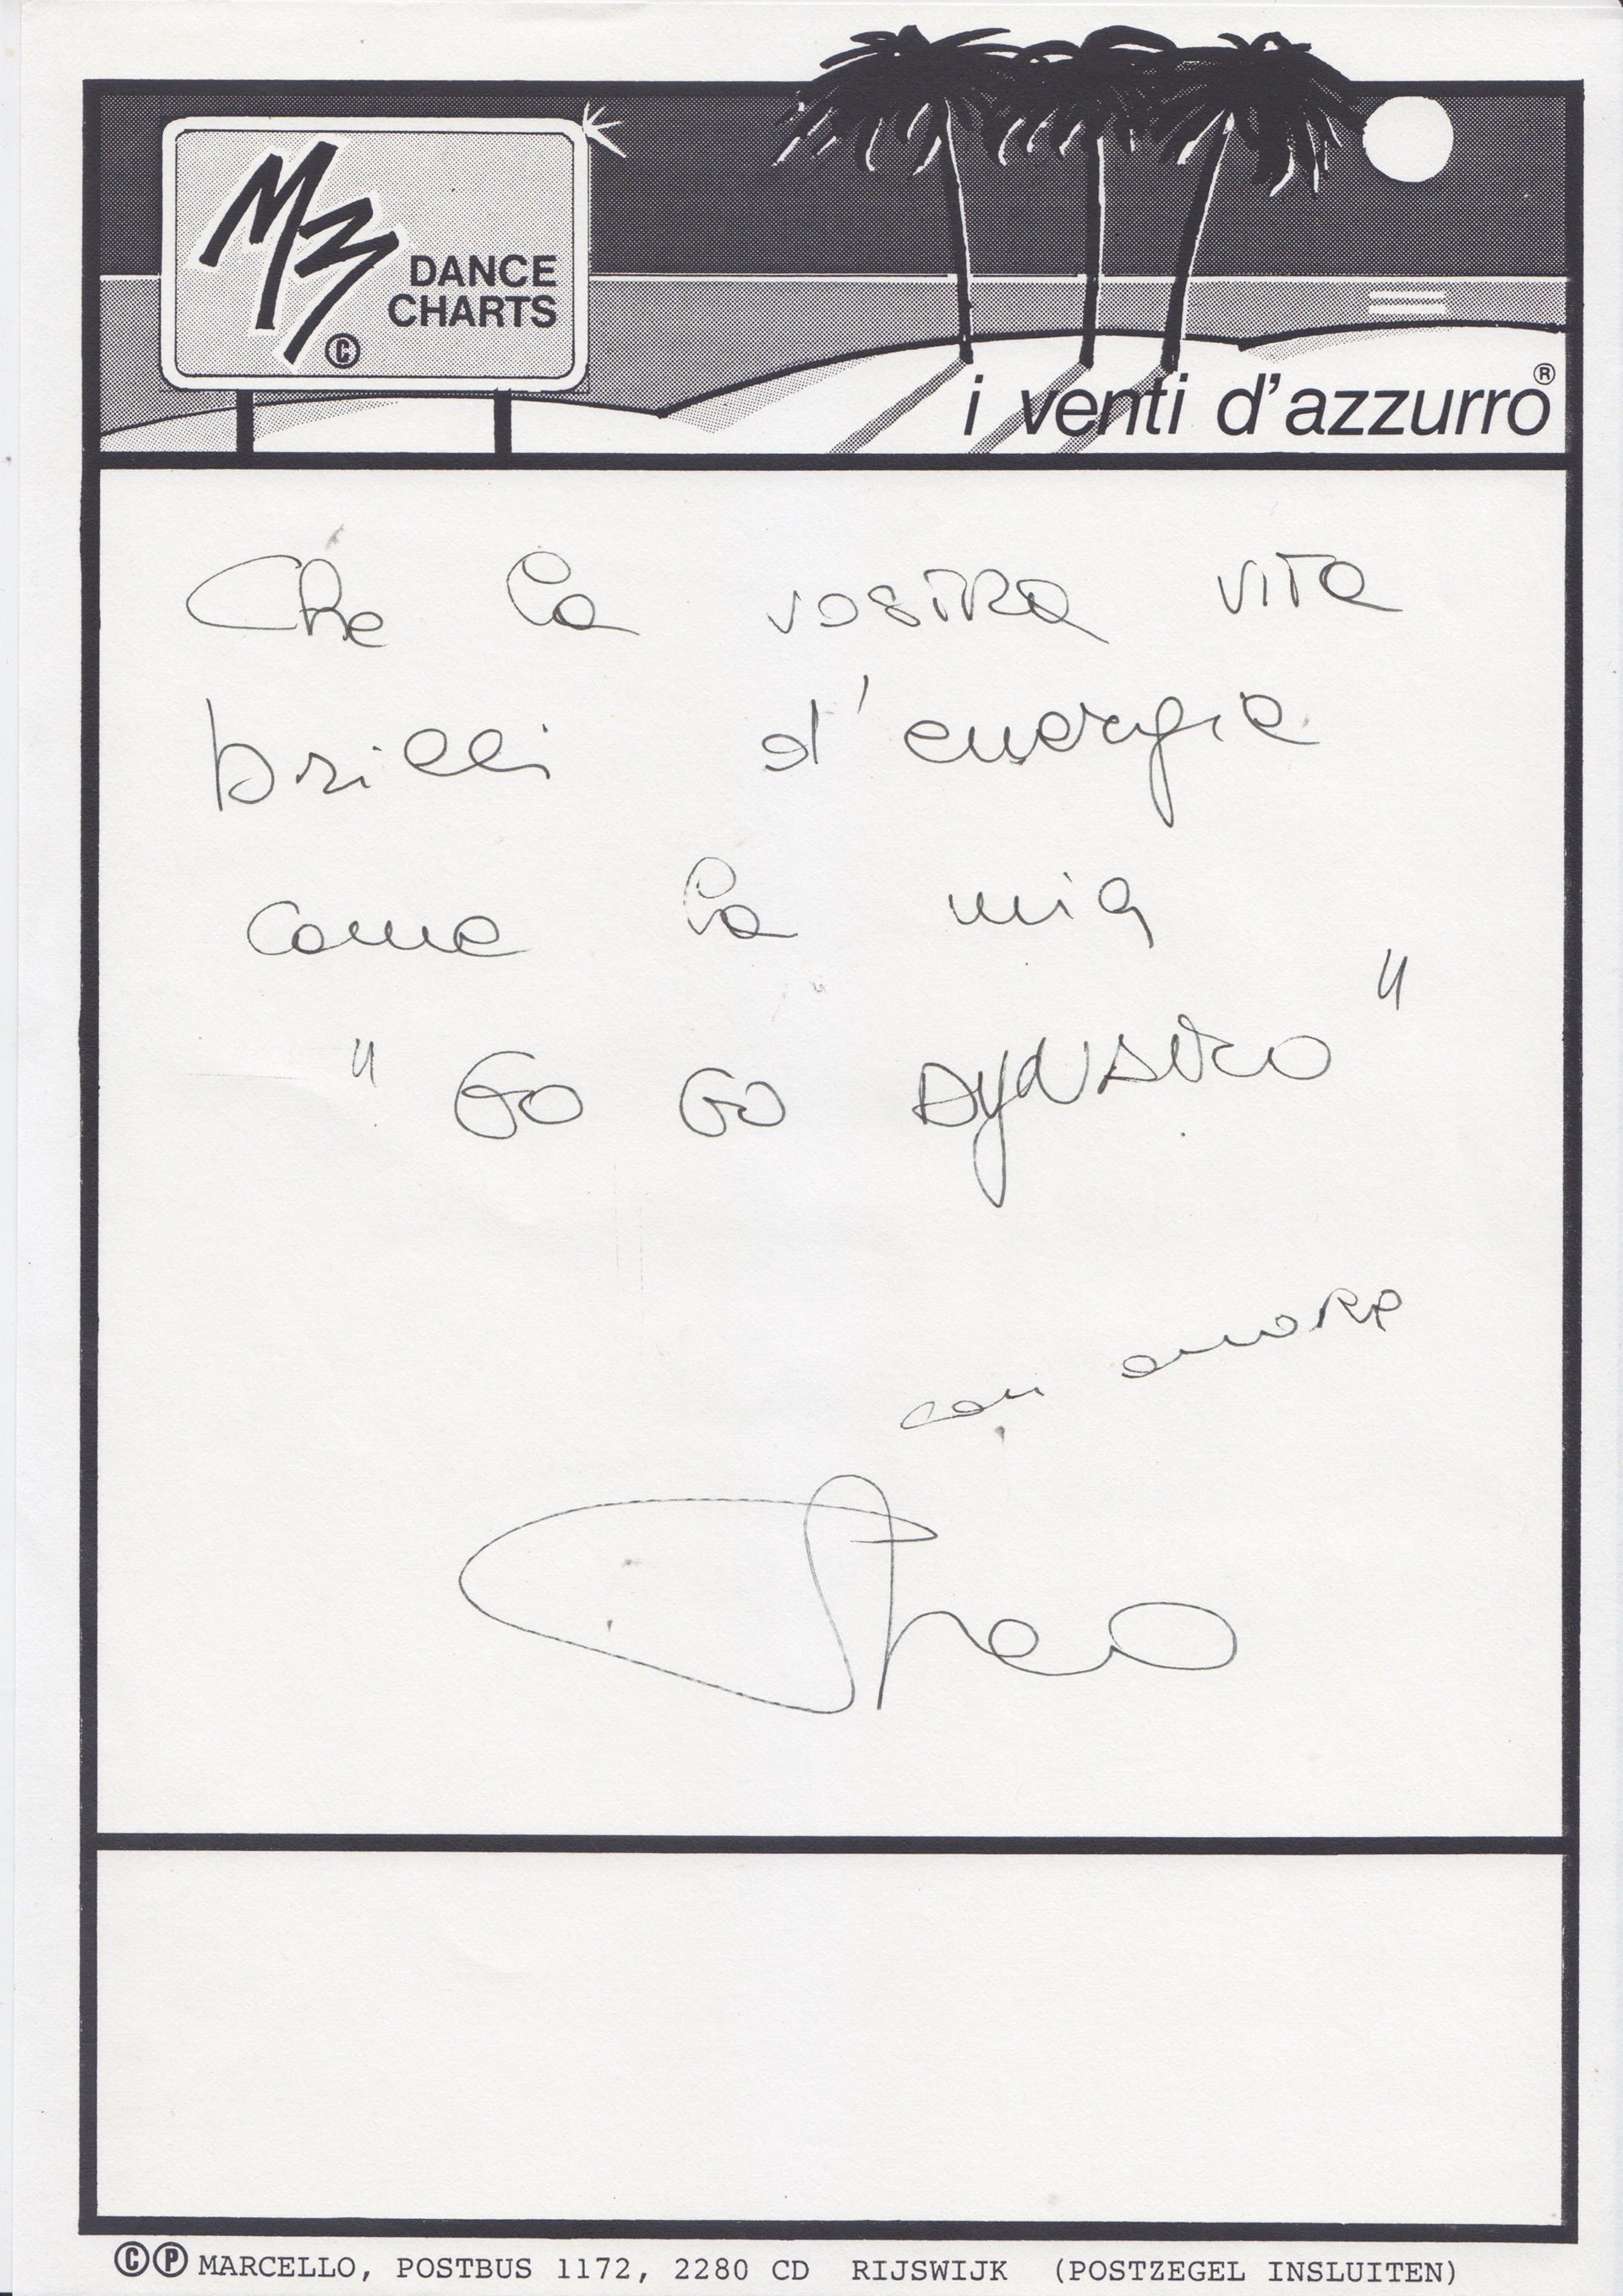 M3
DANCE
CHARTS
©
i venti d'azzurro®
Che la vostra vita
brilli d'energia
come la mia
"GO GO DYNAMO"
con amore
Theo
©℗ MARCELLO, POSTBUS 1172, 2280 CD RIJSWIJK (POSTZEGEL INSLUITEN)